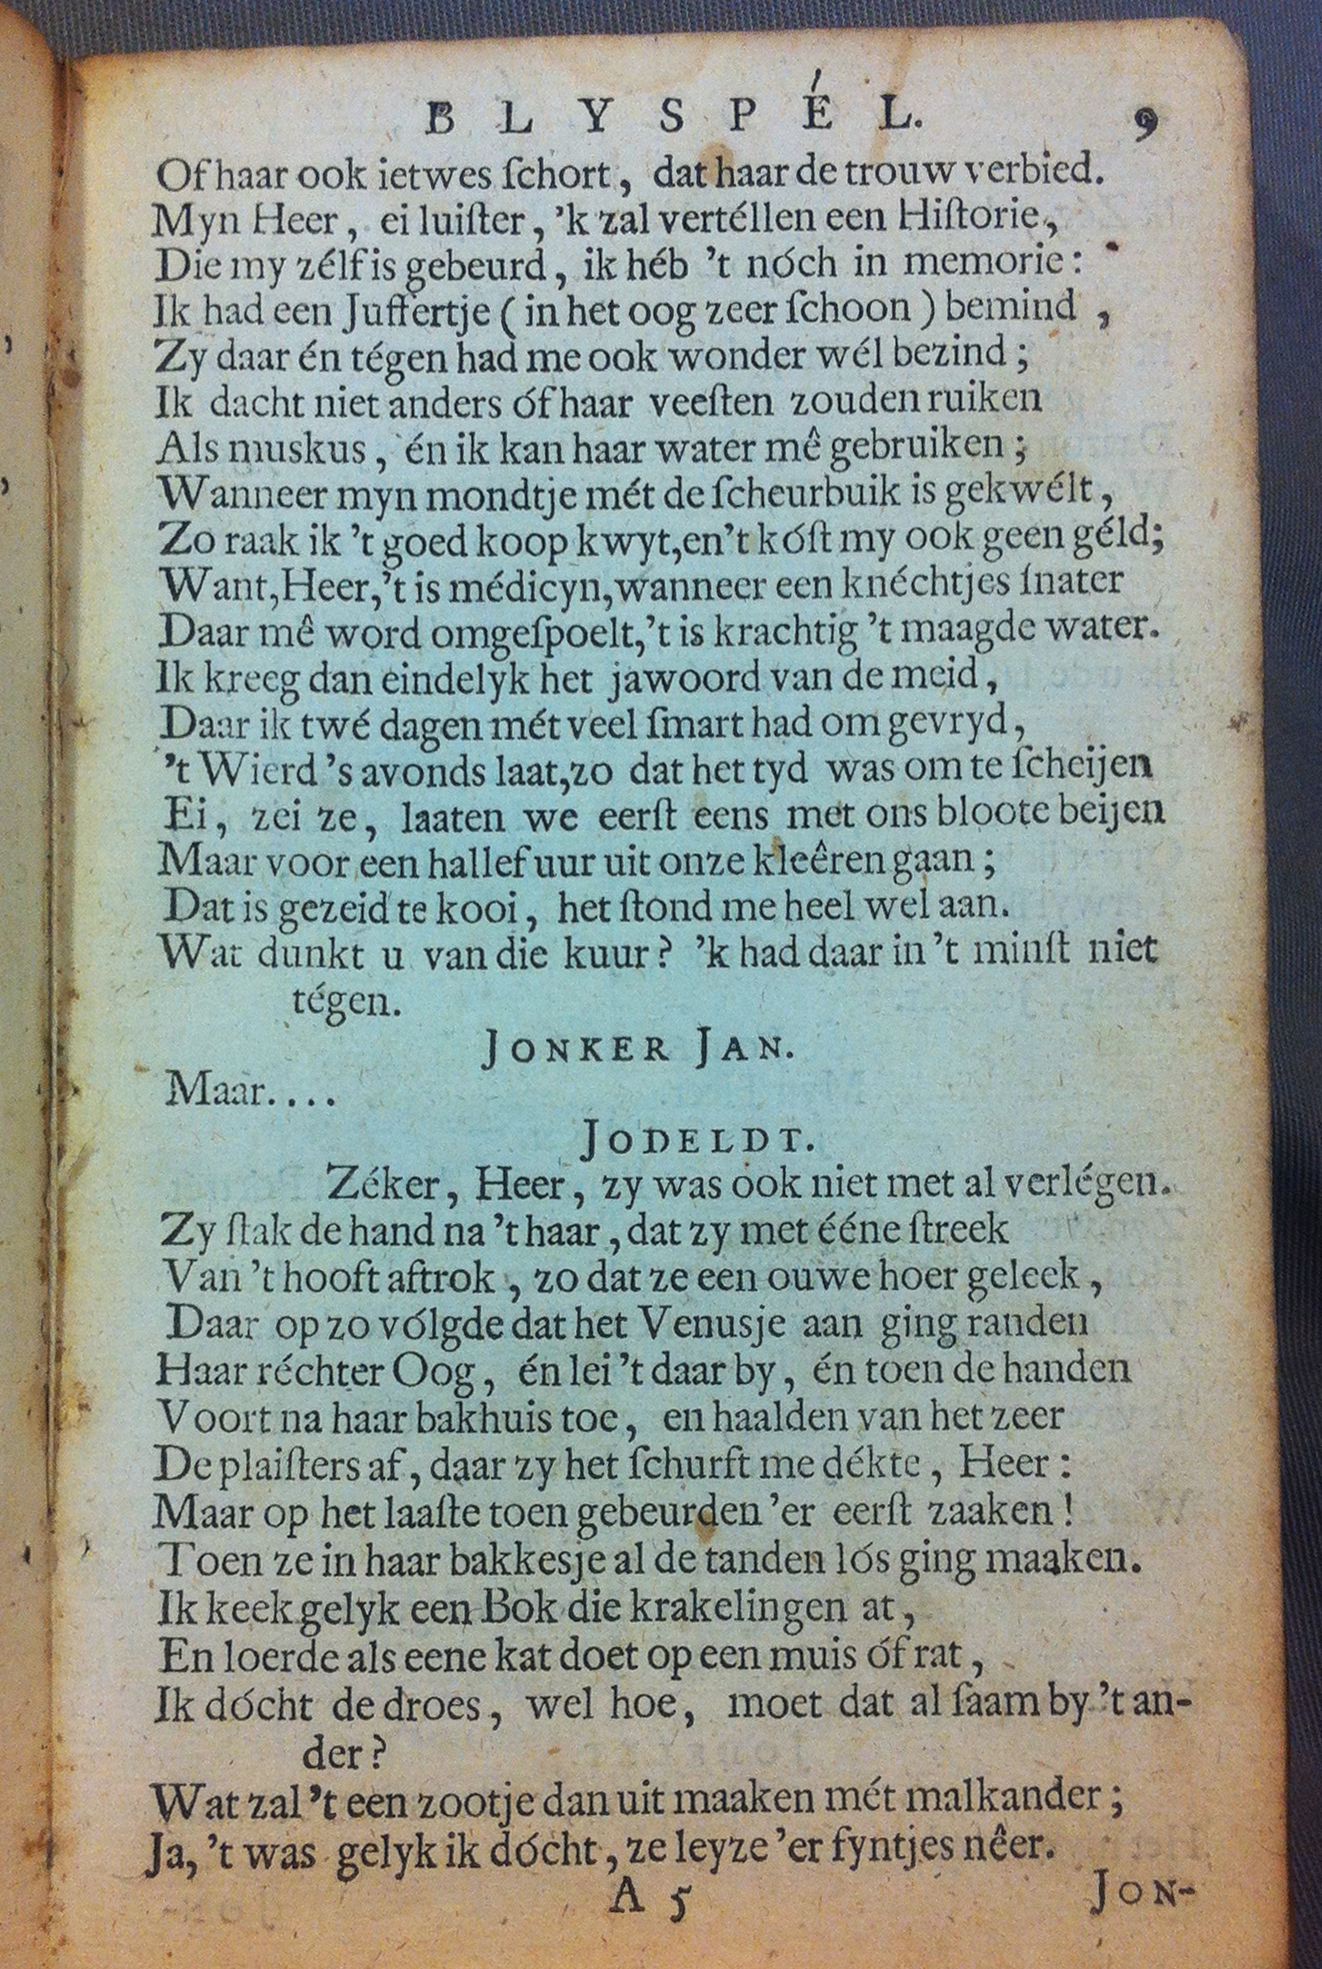 BLYSPÉL. 9
Of haar ook ietwes ſchort, dat haar de trouw verbied.
Myn Heer, ei luiſter, ’k zal vertéllen een Hiſtorie,
Die my zélf is gebeurd, ik héb ’t nóch in memorie:
Ik had een Juffertje ( in het oog zeer ſchoon ) bemind ,
Zy daar én tégen had me ook wonder wél bezind ;
Ik dacht niet anders óf haar veeſten zouden ruiken
Als muskus, én ik kan haar water mê gebruiken ;
Wanneer myn mondtje mét de ſcheurbuik is gekwélt,
Zo raak ik ’t goed koop kwyt,en’t kóſt my ook geen géld;
Want,Heer,’t is médicyn,wanneer een knéchtjes ſnater
Daar mê word omgeſpoelt,’t is krachtig ’t maagde water.
Ik kreeg dan eindelyk het jawoord van de meid,
Daar ik twé dagen mét veel ſmart had om gevryd,
’t Wierd ’s avonds laat,zo dat het tyd was om te ſcheijen
Ei, zei ze, laaten we eerſt eens met ons bloote beijen
Maar voor een hallef uur uit onze kleêren gaan ;
Dat is gezeid te kooi, het ſtond me heel wel aan.
Wat dunkt u van die kuur? ’k had daar in ’t minſt niet
tégen.
JONKER JAN.
Maar....
JODELDT.
Zéker, Heer, zy was ook niet met al verlégen.
Zy ſtak de hand na ’t haar, dat zy met ééne ſtreek
Van ’t hooft aftrok, zo dat ze een ouwe hoer geleek,
Daar op zo vólgde dat het Venusje aan ging randen
Haar réchter Oog, én lei ’t daar by, én toen de handen
Voort na haar bakhuis toe, en haalden van het zeer
De plaiſters af, daar zy het ſchurft me dékte, Heer:
Maar op het laaſte toen gebeurden ’er eerſt zaaken!
Toen ze in haar bakkesje al de tanden lós ging maaken.
Ik keek gelyk een Bok die krakelingen at,
En loerde als eene kat doet op een muis óf rat,
Ik dócht de droes, wel hoe, moet dat al ſaam by ’t an-
der?
Wat zal ’t een zootje dan uit maaken mét malkander;
Ja, ’t was gelyk ik dócht, ze leyze ’er fyntjes nêer.
A 5 JON-